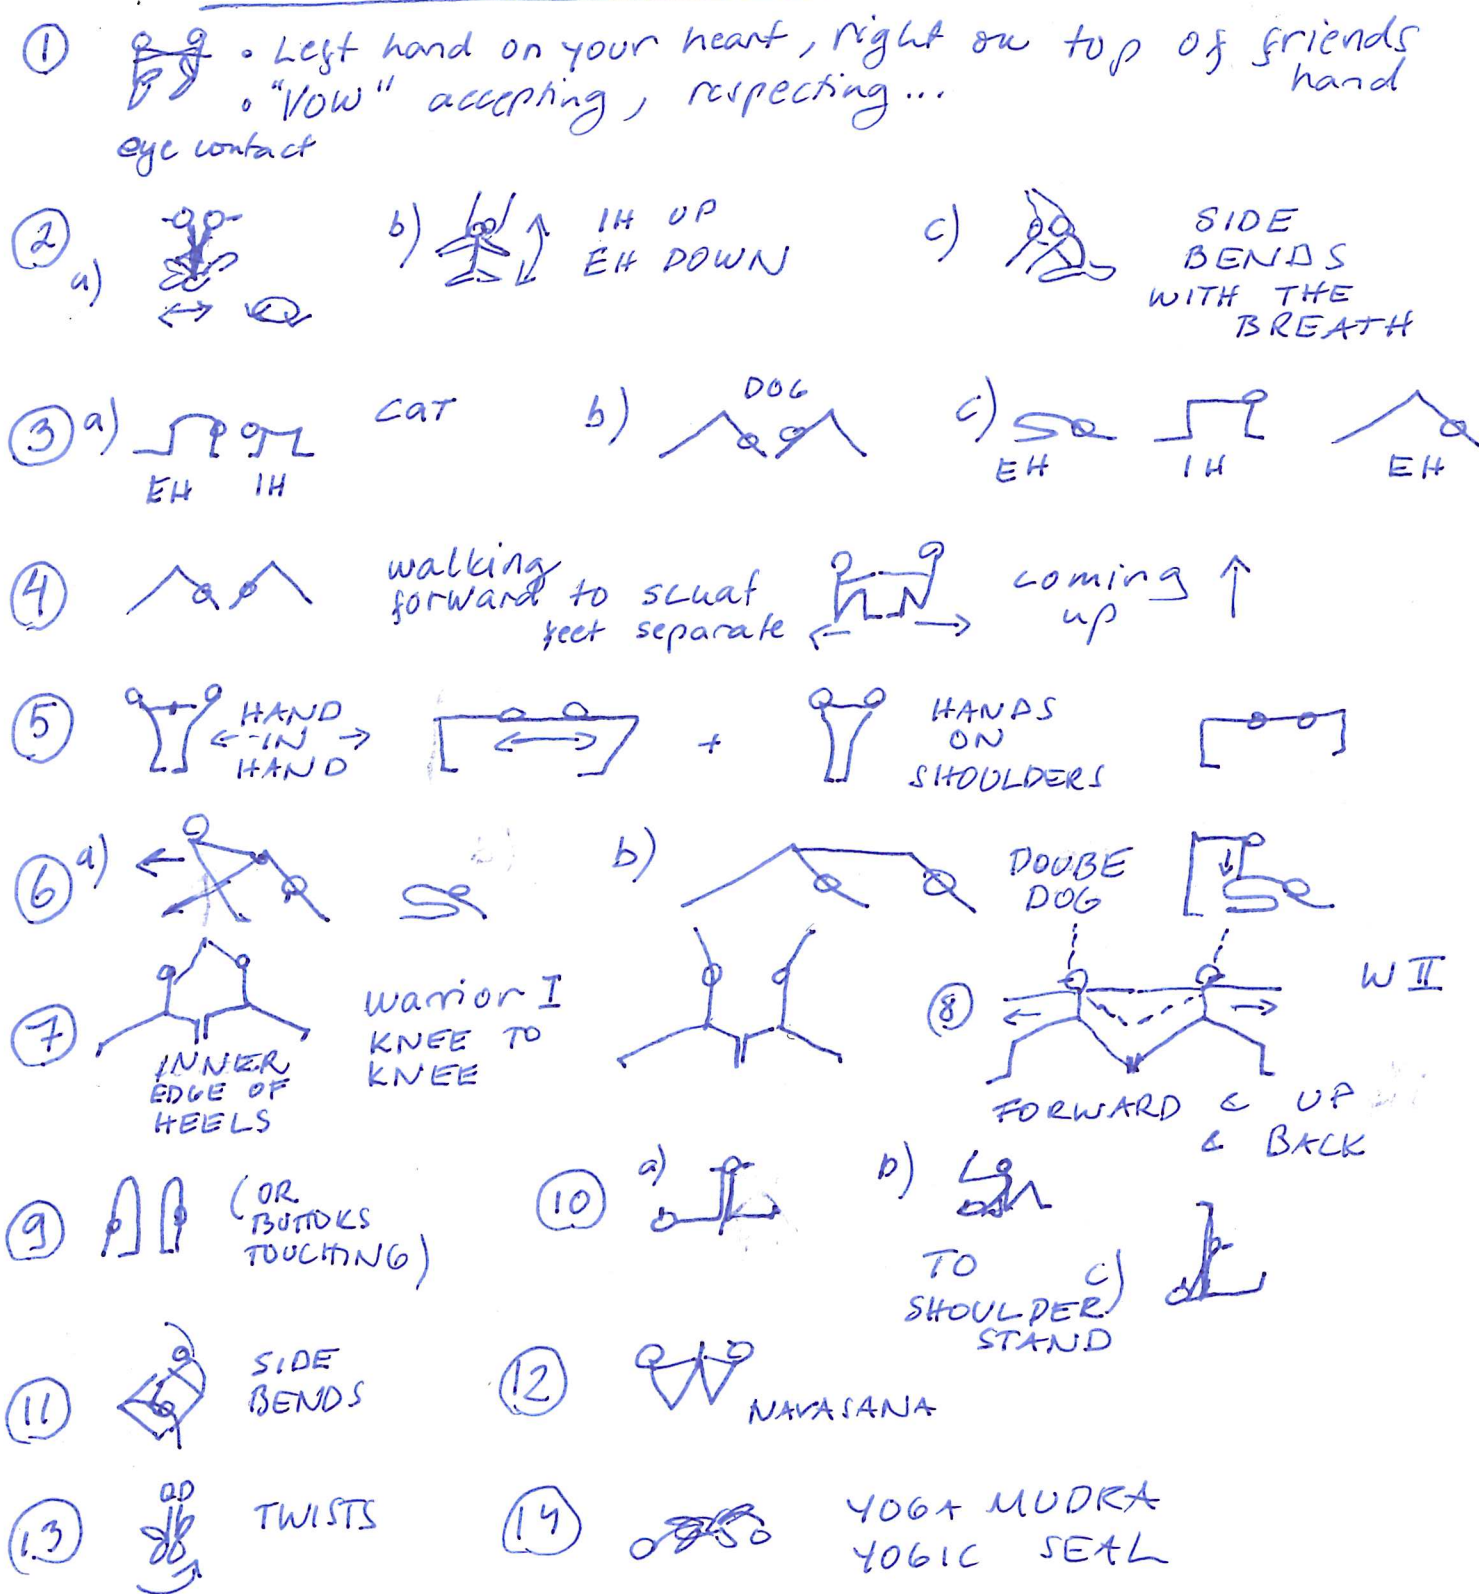 1 • Left hand on your heart, right on top of friends
hand
• "VOW" accepting, respecting...
eye contact
2
a) b) IH UP
EH DOWN
c) SIDE
BENDS
WITH THE
BREATH
3 a) CAT
EH IH
b) DOG
c)
EH IH EH
4 walking
forward to squat
feet separate
coming
up
5 HAND
IN
HAND
+
HANDS
ON
SHOULDERS
6 a) b) DOUBE
DOG
7 INNER
EDGE OF
HEELS
Warrior I
KNEE TO
KNEE
8 W II
FORWARD & UP
& BACK
9 (OR
BUTTOKS
TOUCHING)
10 a) b)
TO
SHOULDER
STAND
c)
11 SIDE
BENDS
12 NAVASANA
13 TWISTS
14 YOGA MUDRA
YOGIC SEAL